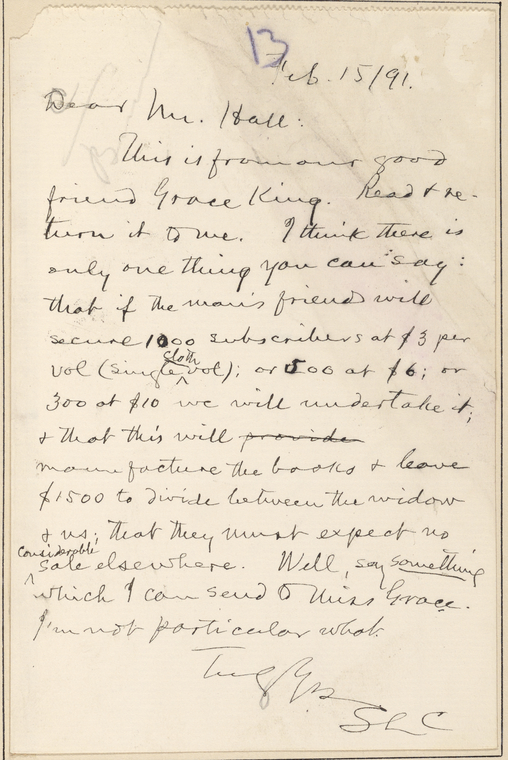 13
Feb. 15/91.
Dear Mr. Hall:
This is from our good
friend Grace King. Read & re-
turn it to me. I think there is
only one thing you can say:
that if the man's friends will
secure 1000 subscribers at $3 per
vol (single cloth vol); or 500 at $6; or
300 at $10 we will undertake it;
& that this will provide
manufacture the books & leave
$1500 to divide between the widow
& us; that they must expect no
considerable
sale elsewhere. Well, say something
which I can send to Miss Grace.
I'm not particular what.
Truly Yrs
SLC